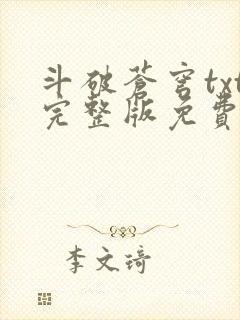 斗破蒼穹txt
完整版免費
李文琦